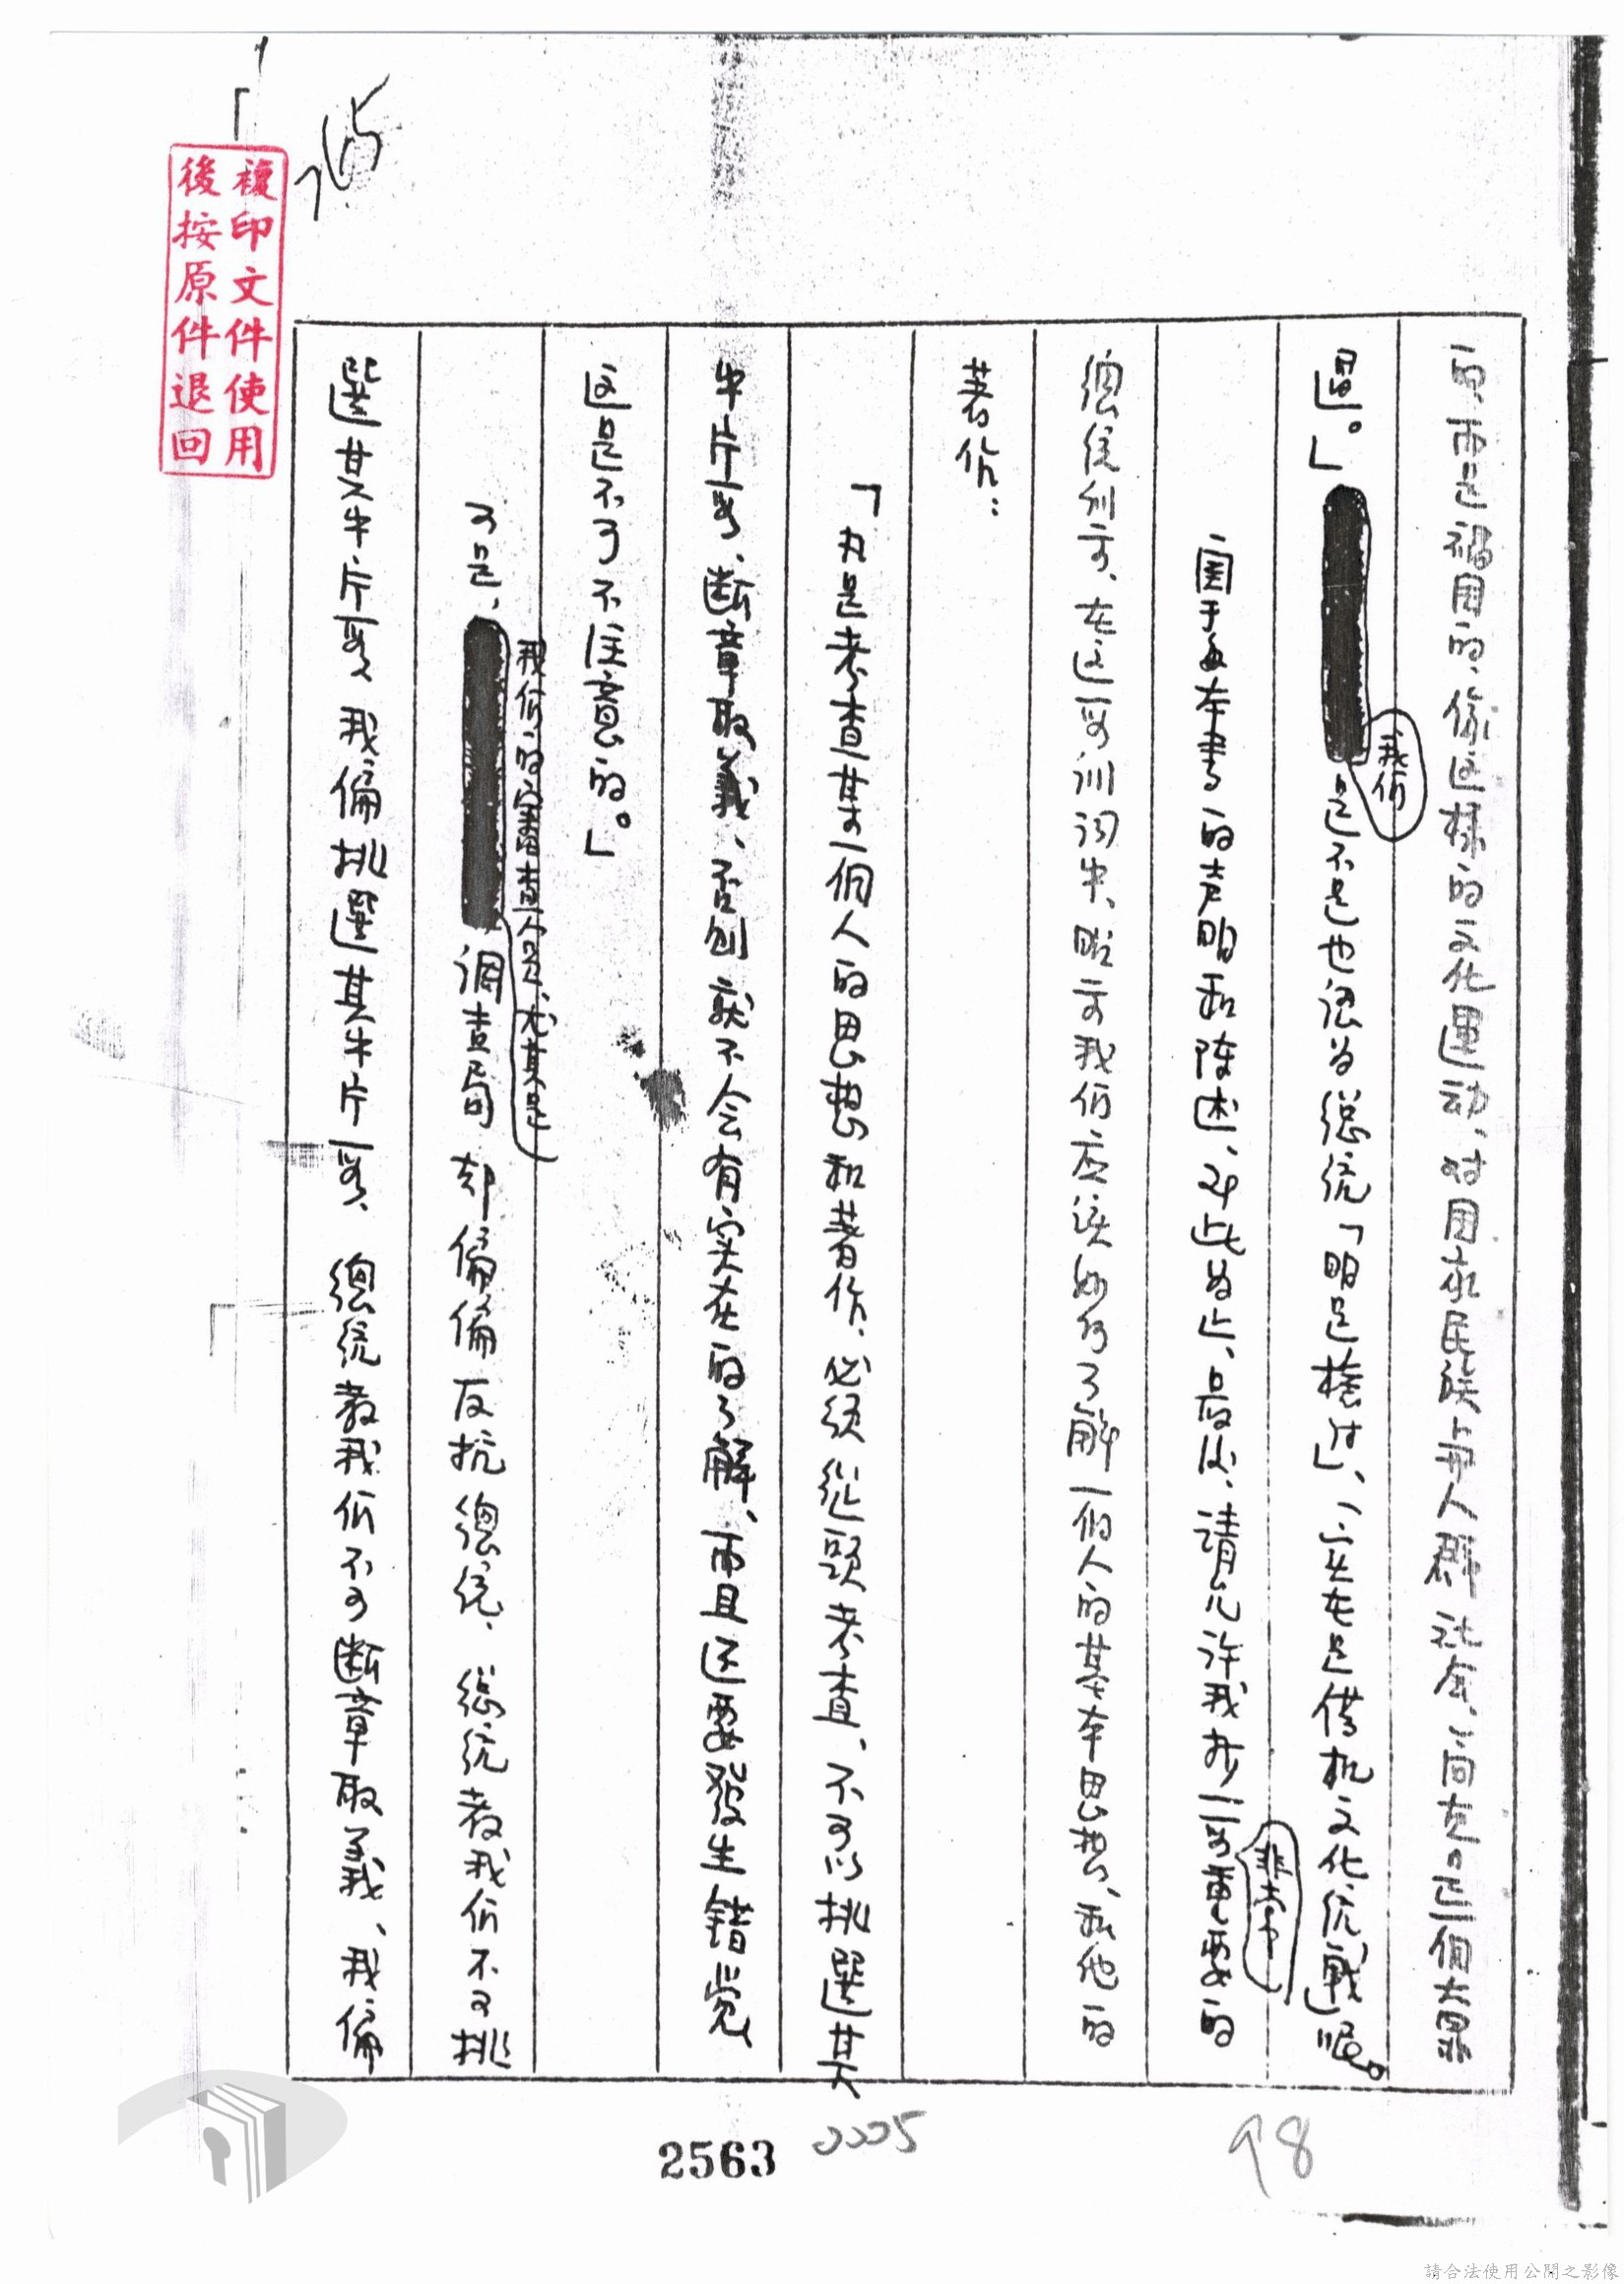 的、而是禍国的、像这樣的文化運动、对国家民族与人群社会、簡直是一個大罪
過。」我们是不是也认为總統「明是捧过」、「实在是借机文化统戰」呢。
関于每本書的声明和陈述、到此为止、最后、請允许我抄一段非常重要的
總統训言、在这一段训词中、昭示我们应该如何了解一個人的基本思想、和他的
著作：
「凡是考查某一個人的思想和著作、必须從頭考查、不可以挑選其
中片段、断章取義、否則就不会有实在的了解、而且还要發生錯覚
这是不可不注意的。」
可是、我们的審查人員、尤其是調查局却偏偏反抗總統、總統教我们不可挑
選其中片段、我偏挑選其中片段、總統教我们不可断章取義、我偏
複印文件使用
後按原件退回
2563
0005
98
請合法使用公開之影像